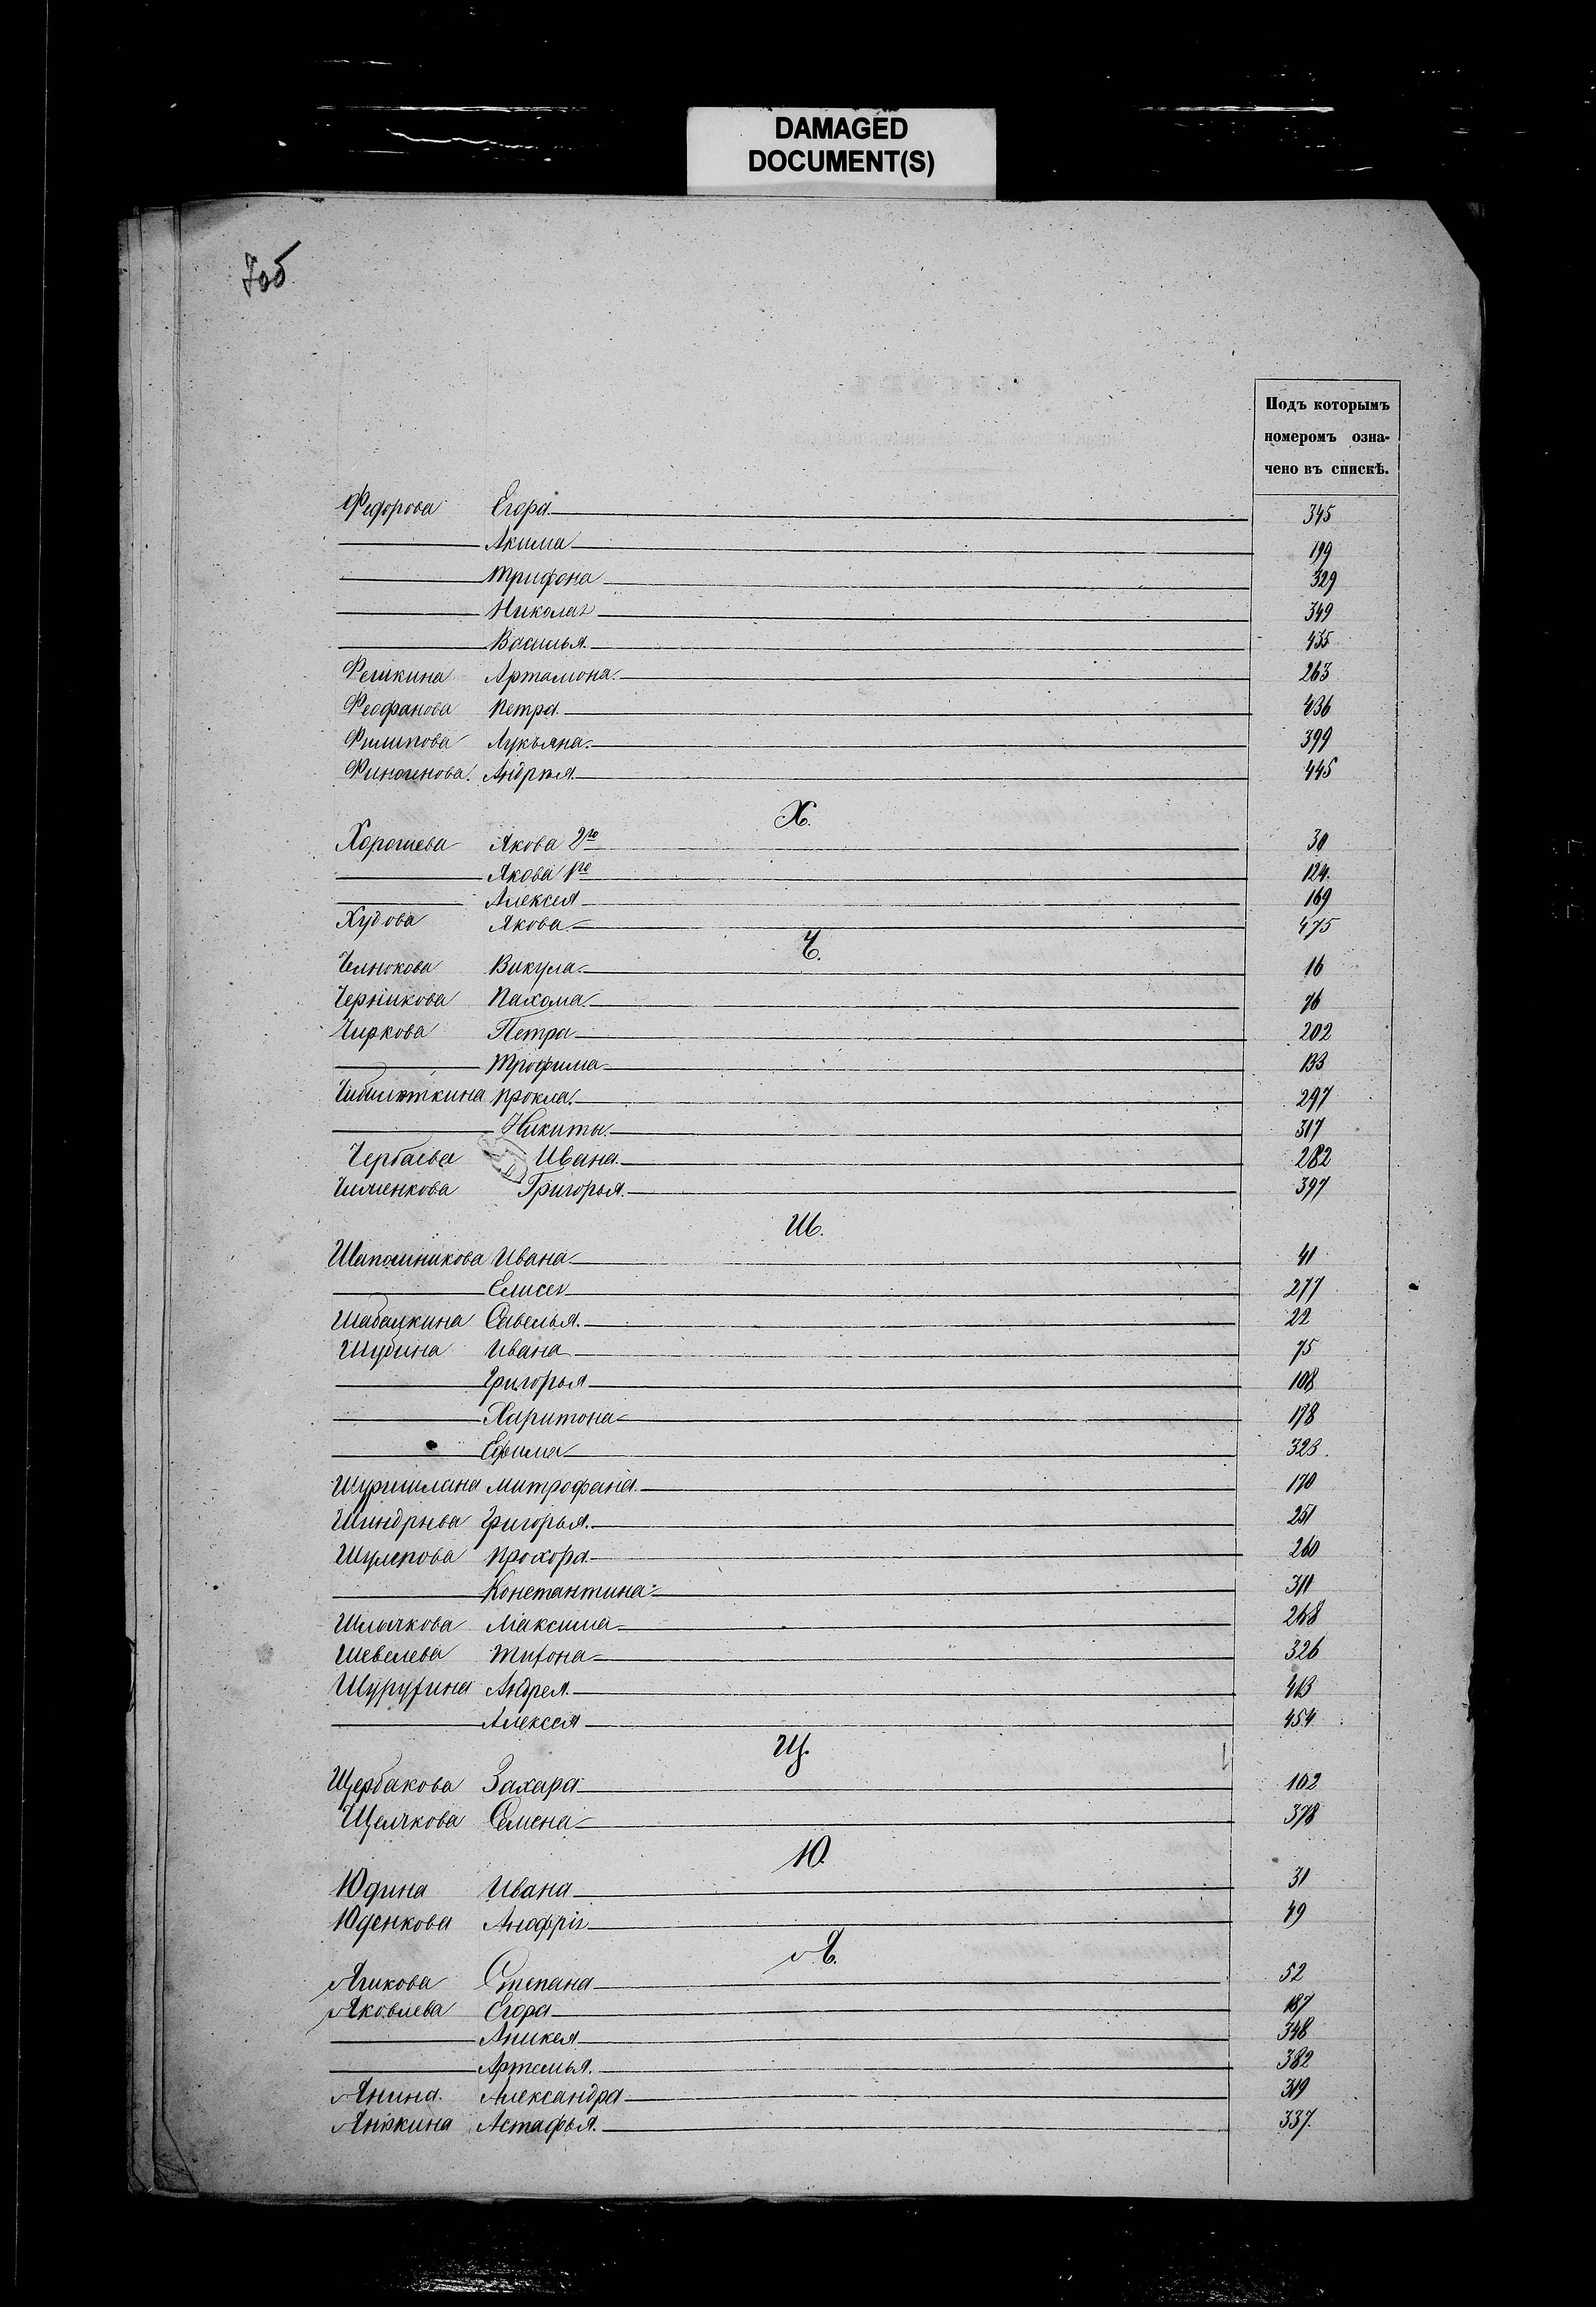 DAMAGED
DOCUMENT(S)
705
Подъ которымъ
номеромъ озна-
чено въ спискѣ.
Федорова Егора 345
Акима 199
Трифона 329
Николая 349
Василья 435
Фешкина Артамона 263
Феофанова Петра 436
Филипова Лукьяна 399
Финогенова Андрея 445
Х.
Хорошева Якова 2го 30
Якова 1го 124.
Алексея 169
Худова Якова 475
Ч.
Челнокова Викула 16
Черникова Пахома 76
Чиркова Петра 202
Трофима 133
Прокла 297
Никиты 317
Чербаева Ивана 282
Григорья 397
Ш.
Шапошникова Ивана 41
Елисея 277
Шабашкина Савелья 22
Шубина Ивана 75
Григорья 108
Харитона 178
Ефима 323.
Митрофана 170
Шиндряева Григорья 251
Шулепова Прохора 260
Константина 311
Максима 268
Шевелева Тихона 326
Шурупина Андрея 413
Алексея 454
Щ.
Щербакова Захара 102
Щелчкова Семена 378
Ю.
Юдина Ивана 31
Юденкова 49
Я.
Ягикова Степана 52
Яковлева Егора 187
Аникея 348
Артемья 382
Янина Александра 319
Яншкина Астафья 337.